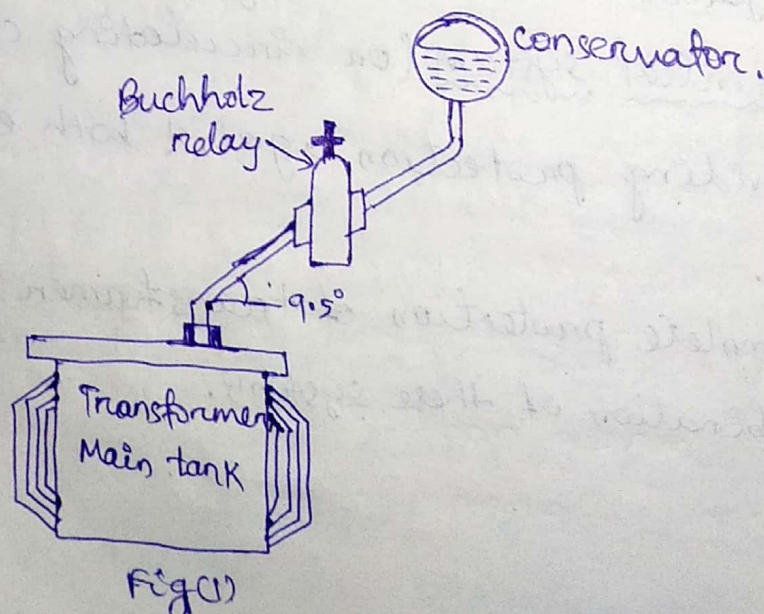 conservator.
Buchholz
relay
9.5°
Transformer
Main tank
Fig(1)